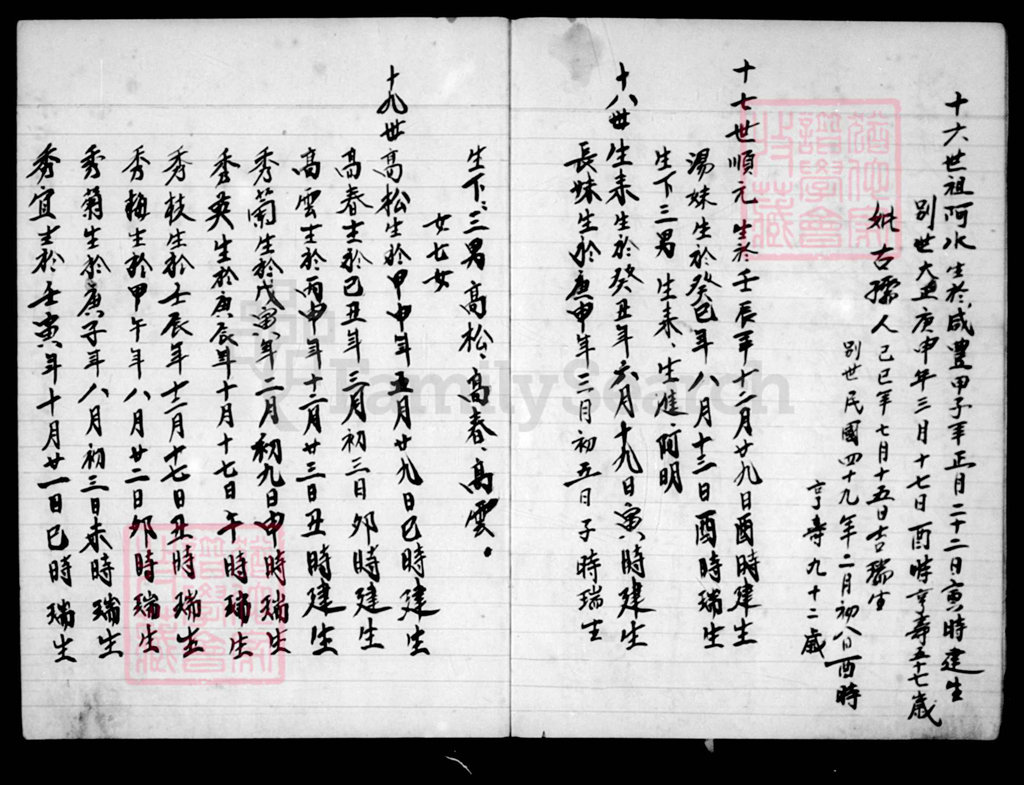 十六世祖阿水生於咸豐甲子年正月二十二日寅時建生
別世大正庚申年三月十七日酉時亨壽五十七歲
妣古孺人己巳年七月十五日吉瑞生
別世民國四十九年二月初八日酉時
亨壽九十二歲
十七世順元生於壬辰年十二月廿九日酉時建生
湯妹生於癸巳年八月十三日酉時瑞生
生下三男 生来、生進、阿明
十八世生来生於癸丑年六月十九日寅時建生
長妹生於庚申年三月初五日子時瑞生
生下:三男高松、高春、高雲。
女七女
十九世高松生於甲申年五月廿九日巳時建生
高春生於己丑年三月初三日卯時建生
高雲生於丙申年十二月廿三日丑時建生
秀蘭生於戊寅年二月初九日申時瑞生
秀英生於庚辰年十月十七日午時瑞生
秀枝生於壬辰年十二月十七日丑時瑞生
秀梅生於甲午年八月廿二日卯時瑞生
秀菊生於庚子年八月初三日未時瑞生
秀宜生於壬寅年十月廿一日巳時瑞生
FamilySearch